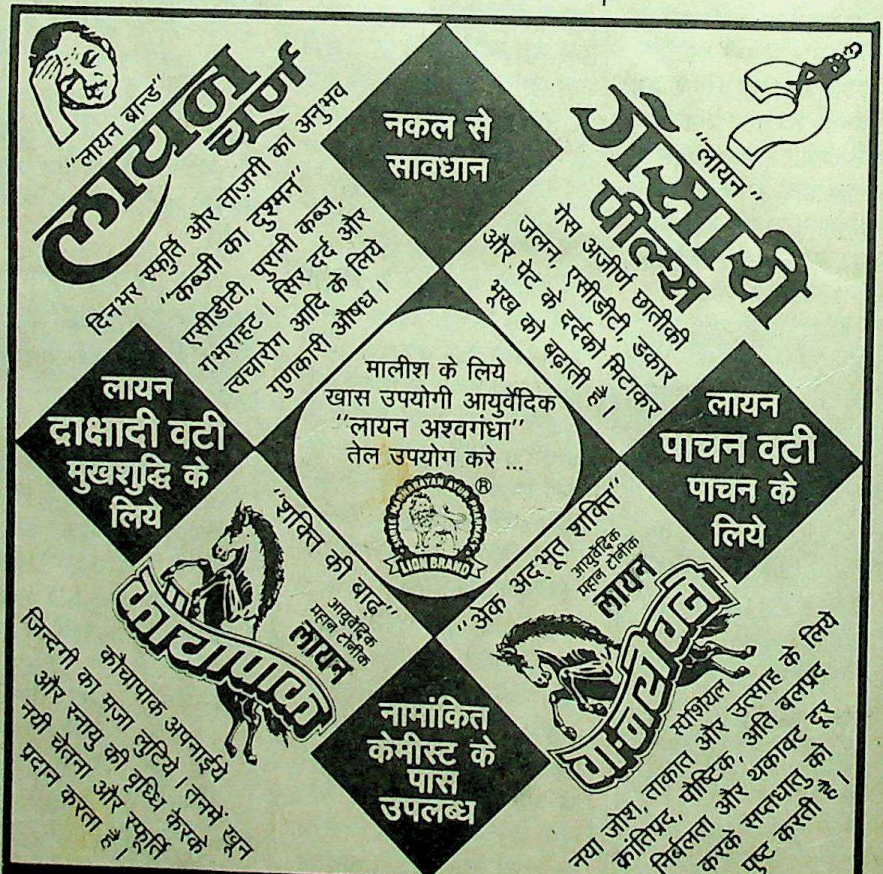 "लायन ब्रान्ड"
लायन
चूर्ण
दिनभर स्फुर्ति और ताज़गी का अनुभव
"कब्जी का दुश्मन"
एसीडीटी, पुरानी कब्ज,
गभराहट । सिर दर्द और
त्वचारोग आदि के लिये
गुणकारी औषध ।
नकल से
सावधान
"लायन"
गेसारी
पील्स
गेस अजीर्ण छातीकी
जलन, एसीडीटी, डकार
और पेट के दर्दको मिटाकर
भूख को बढ़ाती है ।
लायन
द्राक्षादी वटी
मुखशुद्धि के
लिये
मालीश के लिये
खास उपयोगी आयुर्वेदिक
"लायन अश्वगंधा"
तेल उपयोग करे ...
®
LION BRAND
लायन
पाचन वटी
पाचन के
लिये
"शक्ति की बाढ़"
आयुर्वेदिक
महान टोनीक
लायन
कौचापाक
कौचापाक अपनाईये
जिन्दगी का मज़ा लुटिये । तनमें खून
और स्नायु की वृध्धि केरके
नयी चेतना और स्फूर्ति
प्रदान करता है ।
नामांकित
केमीस्ट के
पास
उपलब्ध
"अेक अद्भूत शक्ति"
आयुर्वेदिक
महान टोनीक
लायन
वा-नरी वटी
स्पेशियल
नया जोश, ताकात और उत्साह के लिये
क्रांतिप्रद, पौष्टिक, अति बलप्रद
निर्बलता और थकावट दूर
करके सप्तधातु को
पुष्ट करती है ।